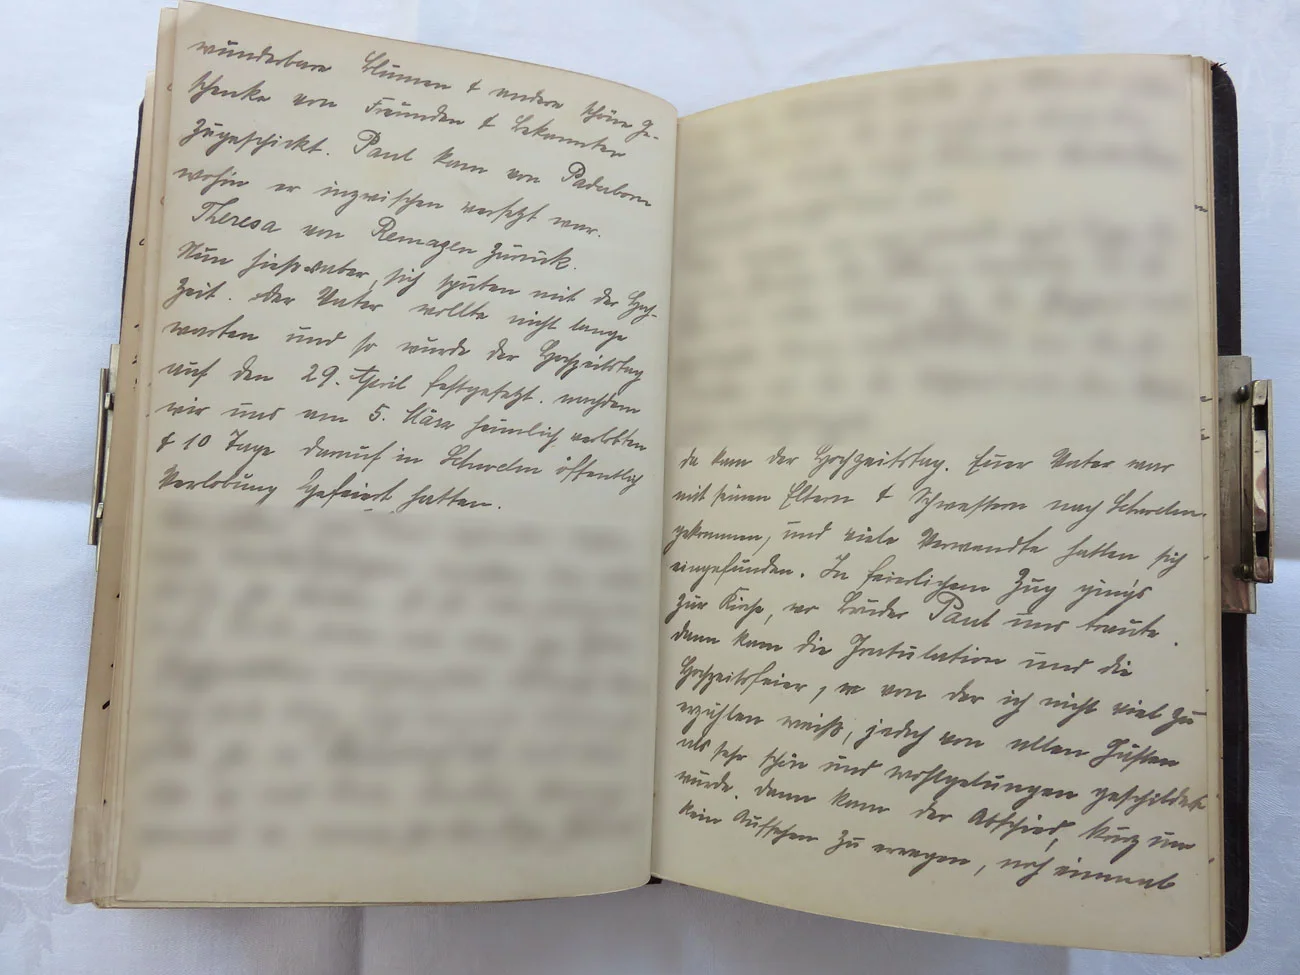 wunderbare Blumen & andere schöne Ge-
schenke von Freunden & Bekannten
zugeschickt. Paul kam von Paderborn
wohin er inzwischen versetzt war.
Theresa von Remagen zurück.
Nun hieß es aber, sich sputen mit der Hoch-
zeit. Der Vater wollte nicht lange
warten und so wurde der Hochzeitstag
auf den 29. April festgesetzt. nachdem
wir uns am 5. März heimlich verlobten
& 10 Tage darauf in Schwelm öffentlich
Verlobung gefeiert hatten.
da kam der Hochzeitstag. Euer Vater war
mit seinen Eltern & Schwestern nach Schwelm
gekommen, und viele Verwandte hatten sich
eingefunden. In feierlichem Zug ging's
zur Kirche, wo Bruder Paul uns traute.
dann kam die Gratulation und die
Hochzeitsfeier, von der ich nicht viel zu
erzählen weiß, jedoch von allen Gästen
als sehr schön und wohlgelungen geschildert
wurde. Dann kam der Abschied, kurz um
kein Aufsehen zu erregen, noch einmal